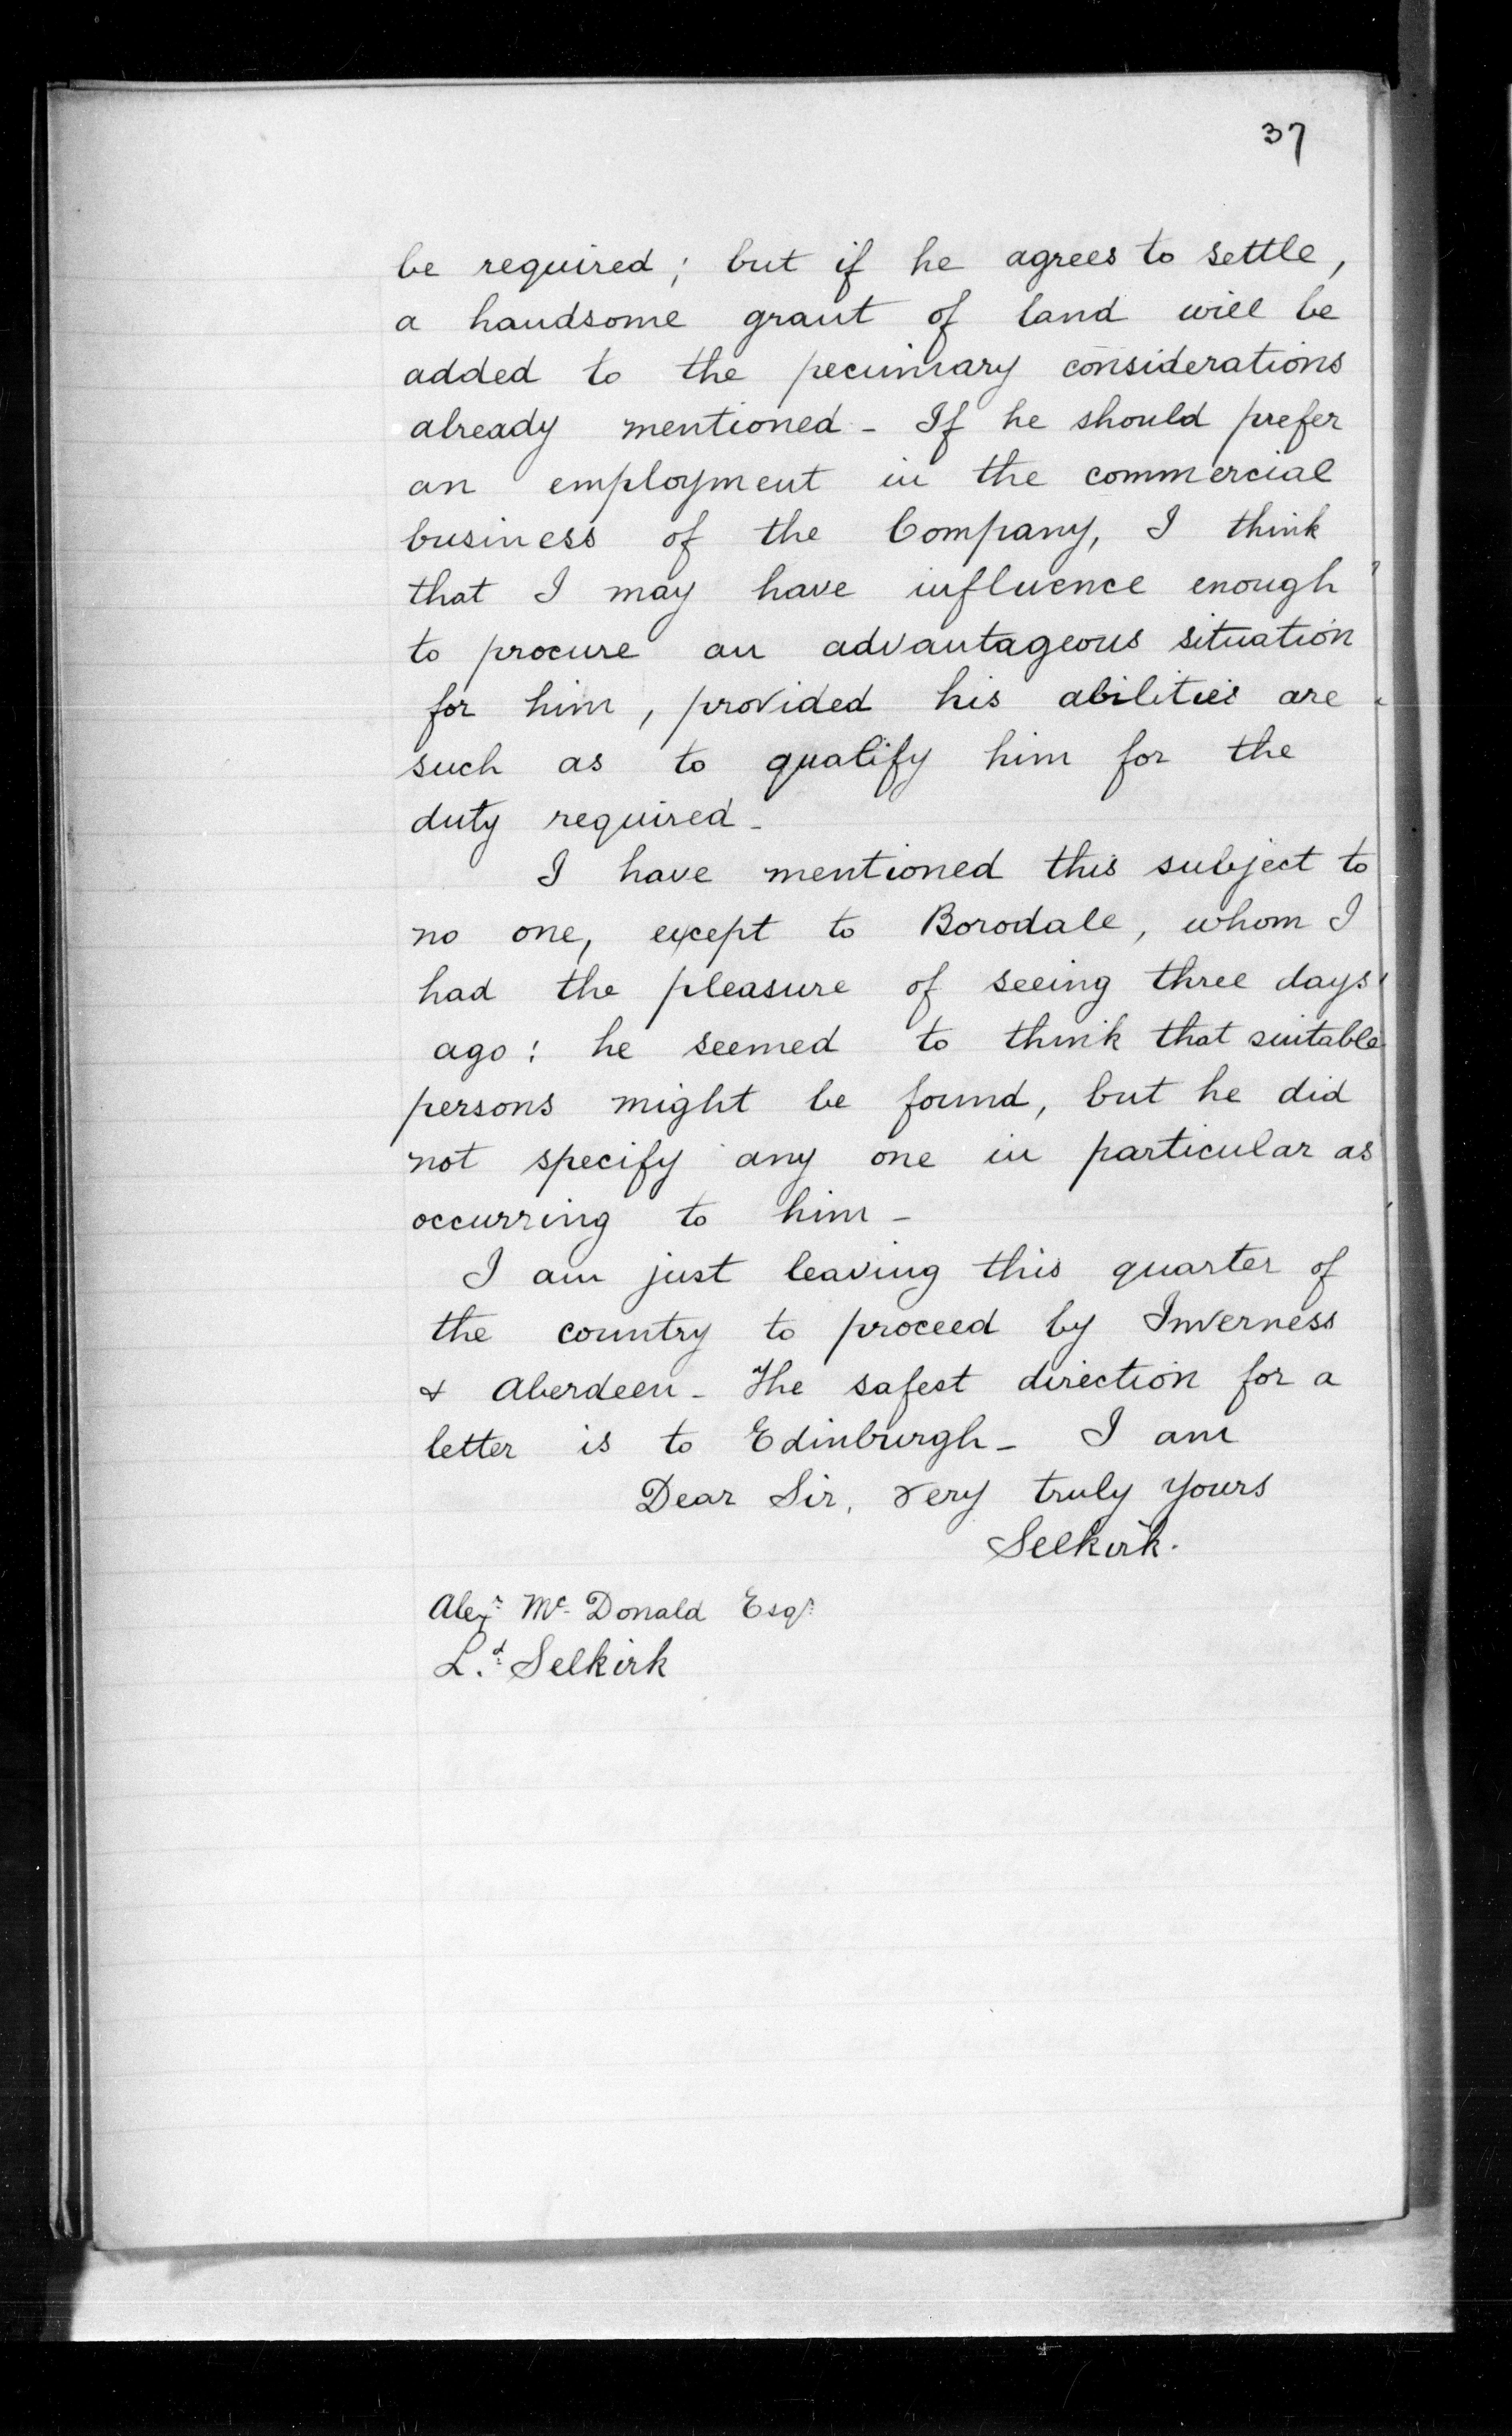 37
be required; but if he agrees to settle,
a handsome grant of land will be
added to the pecuniary considerations
already mentioned - If he should prefer
an employment in the commercial
business of the Company, I think
that I may have influence enough
to procure an advantageous situation
for him, provided his abilities are
such as to qualify him for the
duty required -
I have mentioned this subject to
no one, except to Borodale, whom I
had the pleasure of seeing three days
ago: he seemed to think that suitable
persons might be found, but he did
not specify any one in particular as
occurring to him -
I am just leaving this quarter of
the country to proceed by Inverness
& Aberdeen - The safest direction for a
letter is to Edinburgh - I am
Dear Sir, very truly yours
Selkirk.
Alexr. Mc. Donald Esqr.
Ld. Selkirk